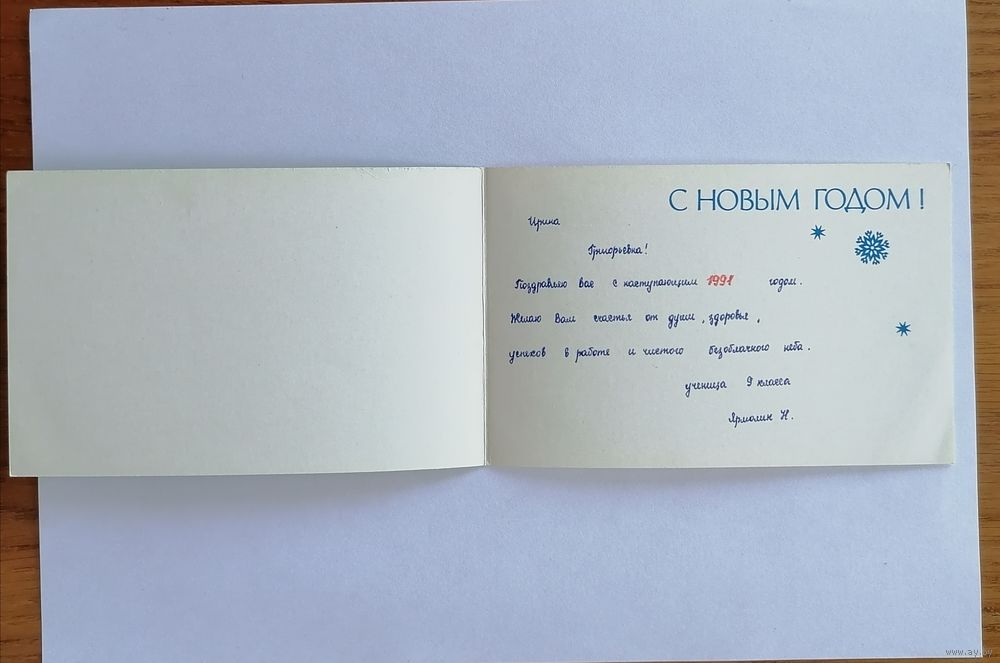 С НОВЫМ ГОДОМ!
Ирина
Григорьевна!
Поздравляю вас с наступающим 1991 годом.
Желаю Вам счастья от души, здоровье,
успехов в работе и чистого безоблачного неба.
ученица 9 класса
Ярмолик Н.
www.ay.by